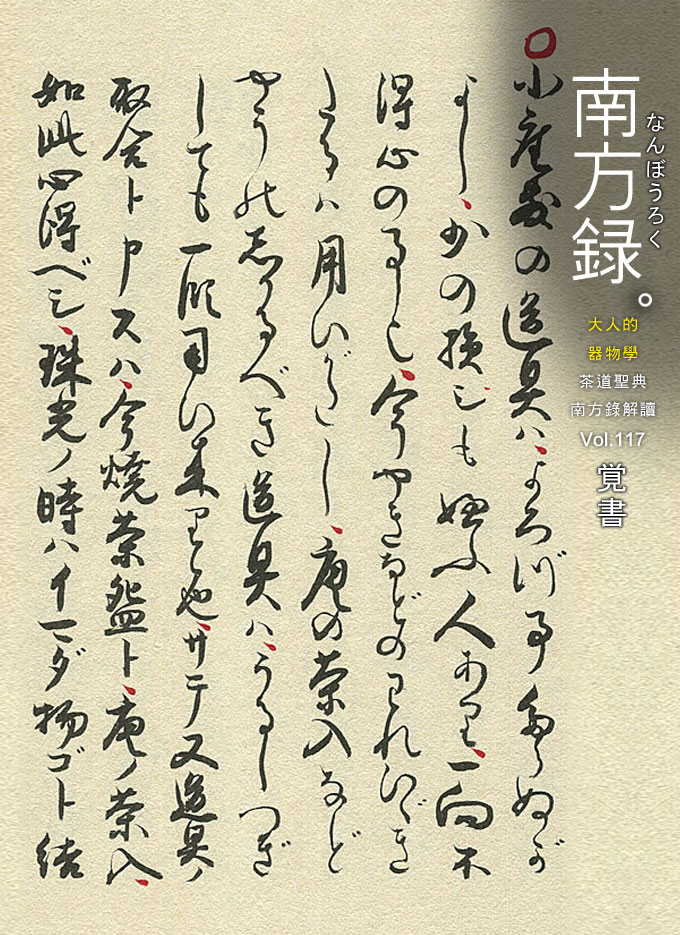 南方録。
なんぼうろく
大人的
器物學
茶道聖典
南方錄解讀
Vol.117
覚書
小座敷の道具ハ、よろづ事たらぬが
よし、少の損シも嫌ふ人あり、一向不
得心の事也、今やきなどのわれひゞき
たるハ用いがたし、唐の茶入など
やうのしかるべき道具ハ、うるしつぎ
しても一段用い来り候也、サテ又道具ノ
取合ト申スハ、今燒茶盌ト、唐ノ茶入、
如此心得ベシ、珠光ノ時ハイマダ物ゴト結